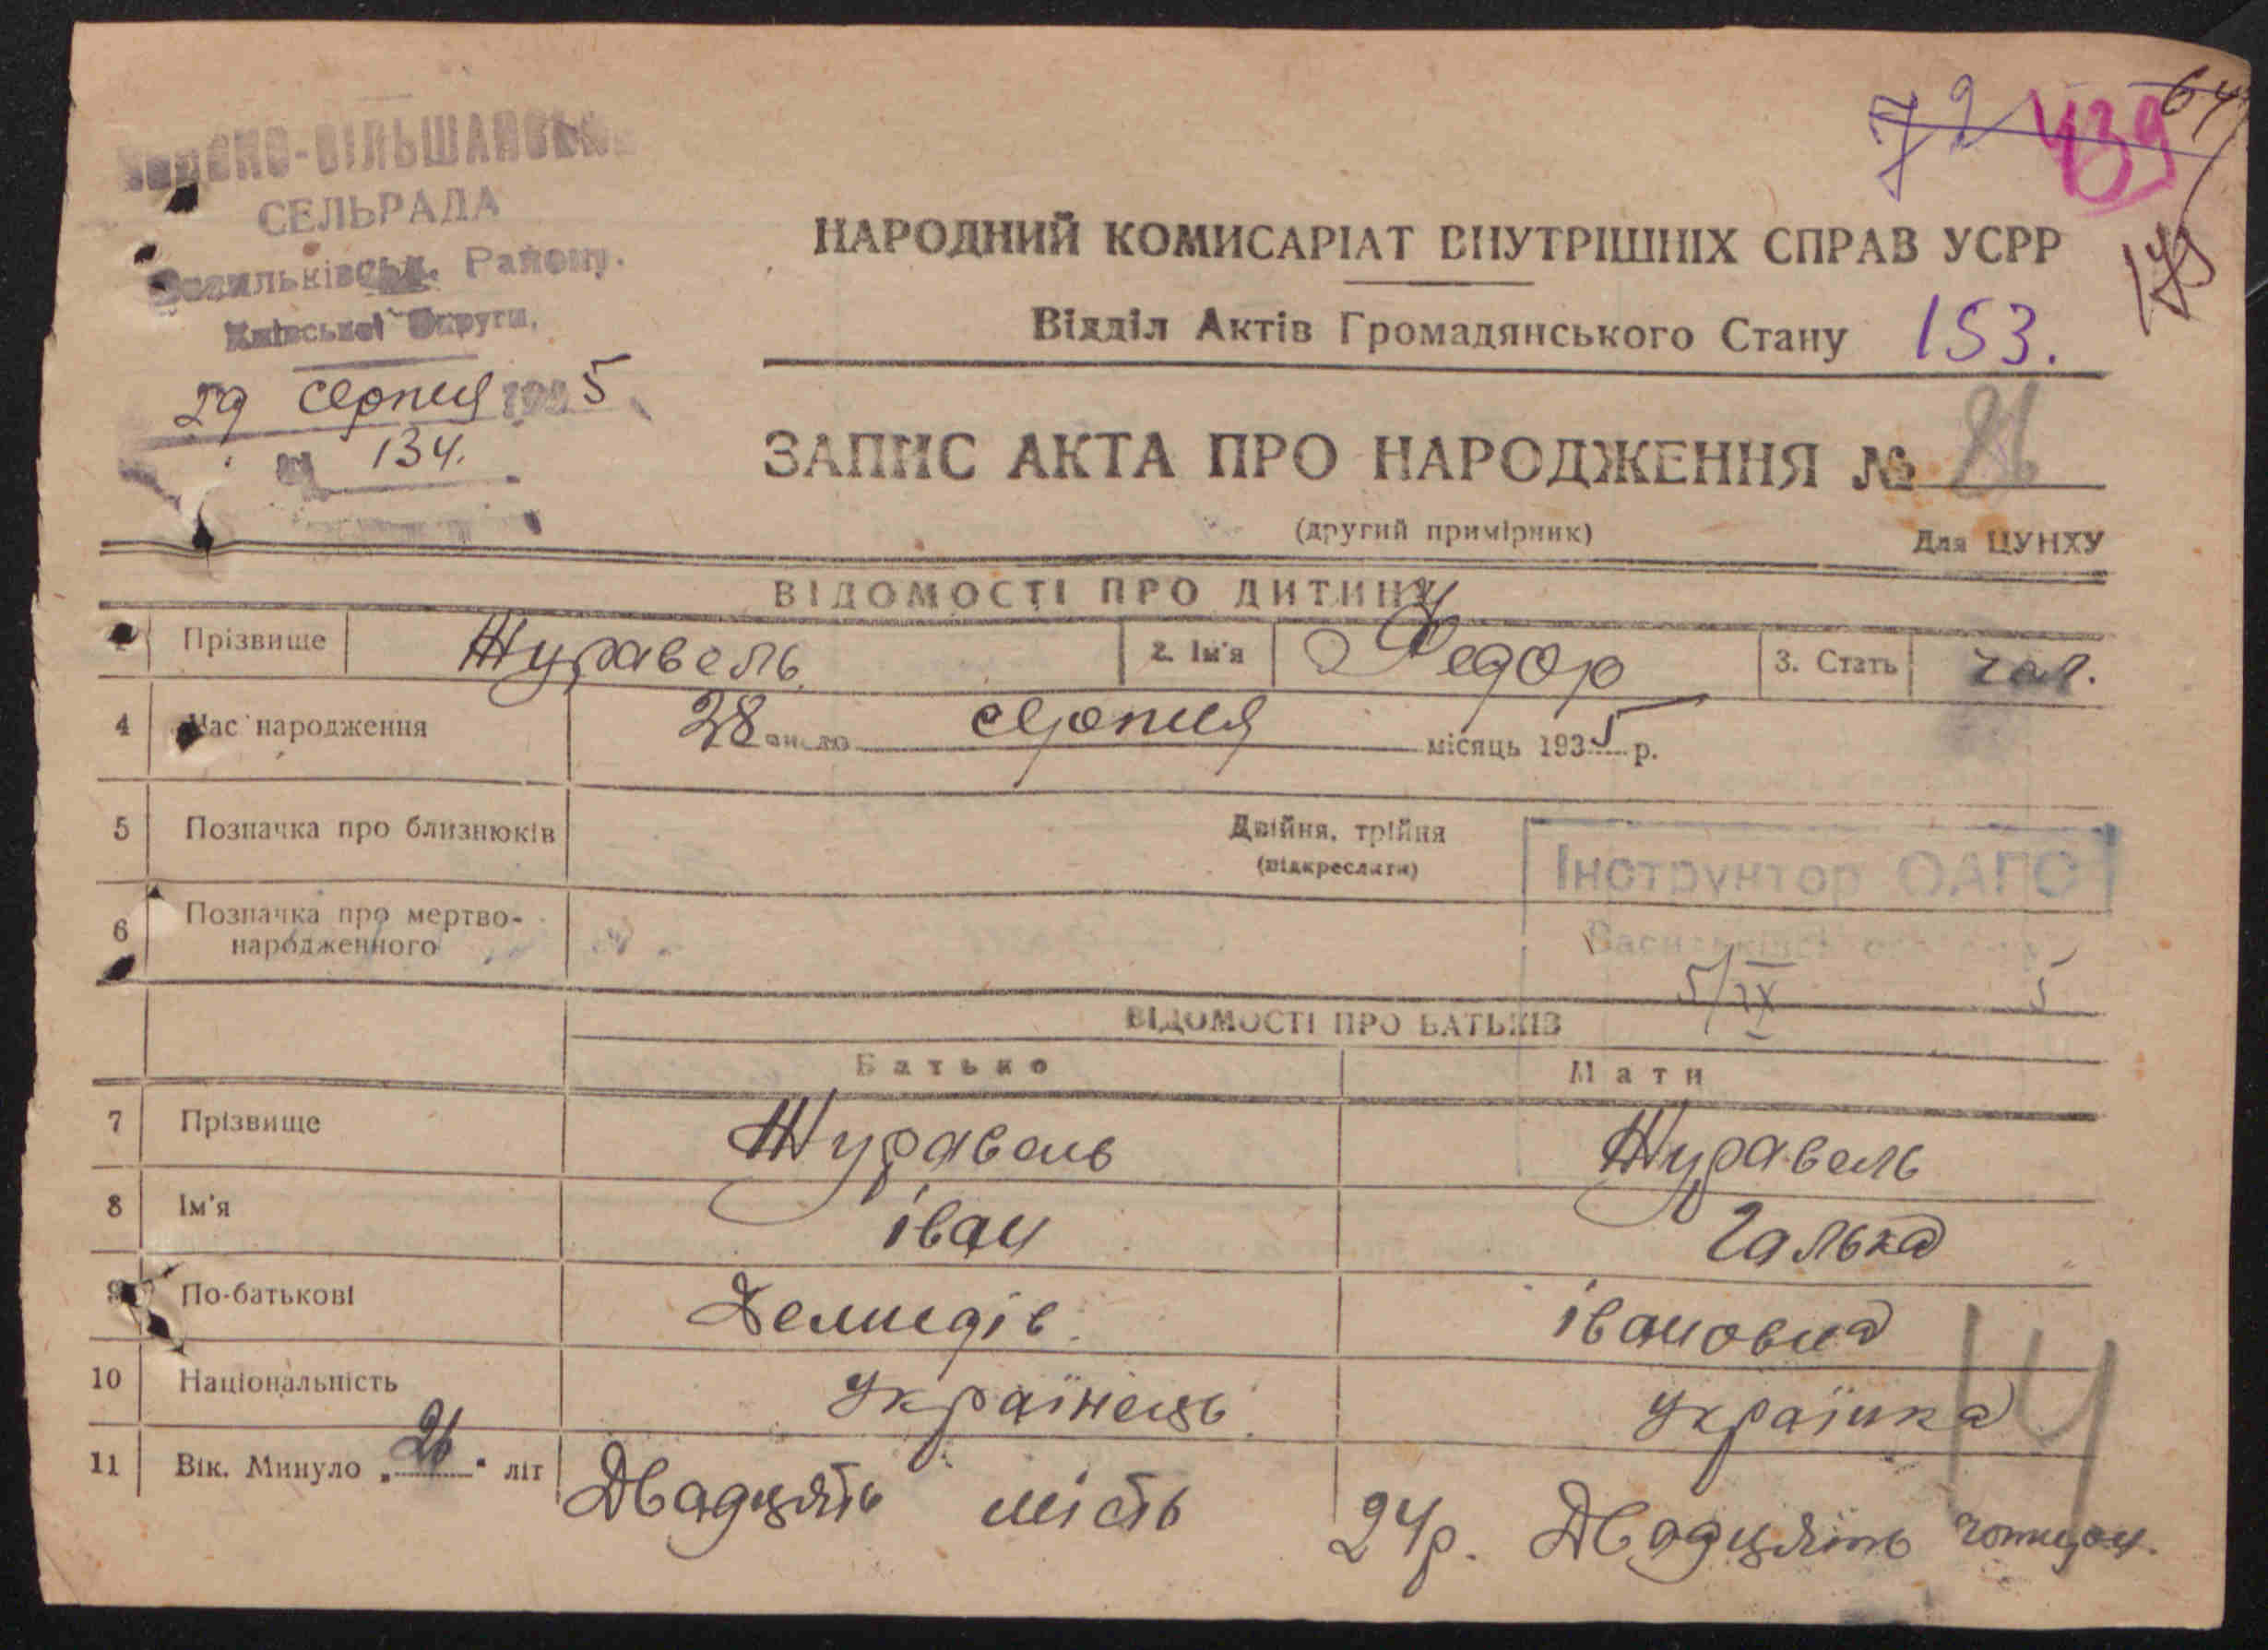 72 439 64
СЕЛЬРАДА
Району.
Київської Округи,
29 серпня 1935
134.
НАРОДНИЙ КОМИСАРІАТ ВНУТРІШНІХ СПРАВ УСРР
Відділ Актів Громадянського Стану 153.
ЗАПИС АКТА ПРО НАРОДЖЕННЯ № 86
(другий примірник) Для ЦУНХУ
ВІДОМОСТІ ПРО ДИТИНУ
Прізвище Журавель 2. Ім'я Федор 3. Стать чол.
4 Час народження 28 число серпня місяць 1935 р.
5 Позначка про близнюків Двійня, трійня
(підкреслити)
Інструктор ОАГС
6 Позначка про мертво-
народженного
5/IX 5
ВІДОМОСТІ ПРО БАТЬКІВ
Батько Мати
7 Прізвище Журавель Журавель
8 Ім'я іван Галька
9 По-батькові Демидів. івановна
10 Національність Українець Українка
11 Вік. Минуло „26" літ Двадцять шість 24р. Двадцять чотири.
14